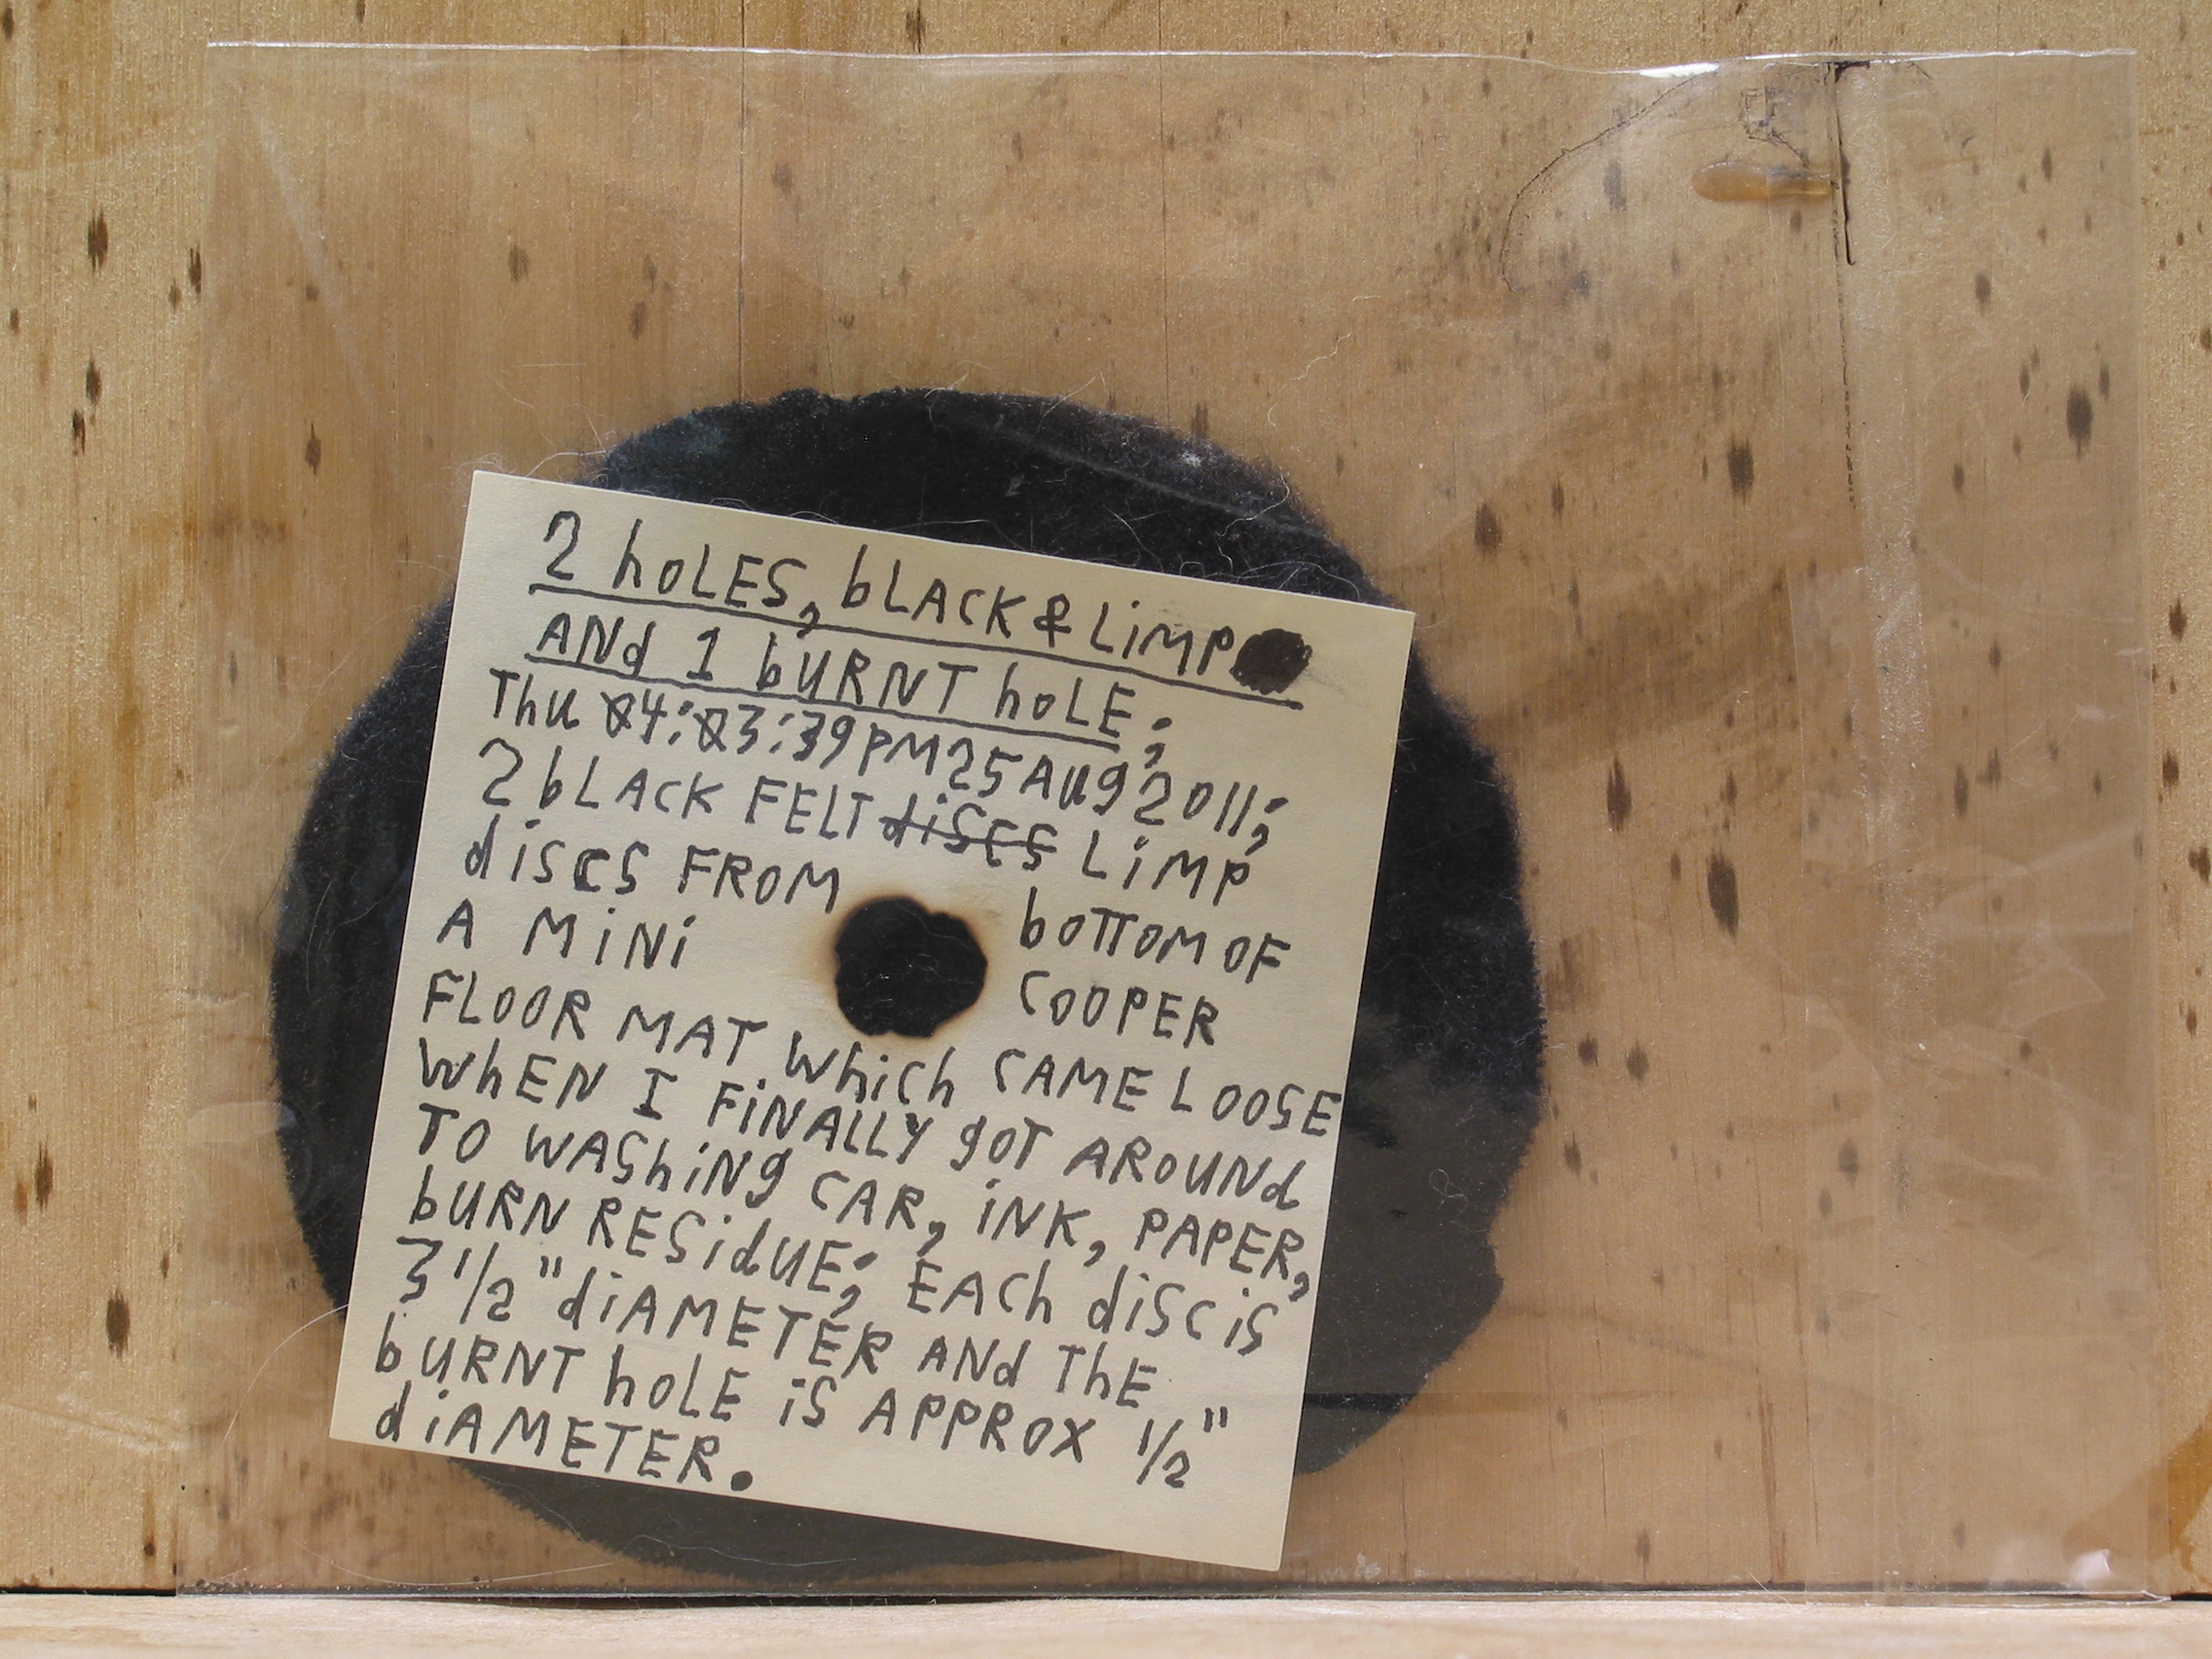 2 hoLES, bLACK & LiMP
ANd 1 bURNT hoLE;
Thu 04:03:39PM 25 AUg 2011;
2 bLACK FELT discs LiMP
discs FROM bOTTOM OF
A MiNi COOPER
FLOOR MAT Which CAME LOOSE
WhEN I FiNALLY gOT AROUNd
TO WAShiNg CAR, iNK, PAPER,
bURN RESidUE; EACh diSC iS
3 1/2" diAMETER ANd ThE
bURNT hoLE iS APPROX 1/2"
diAMETER.